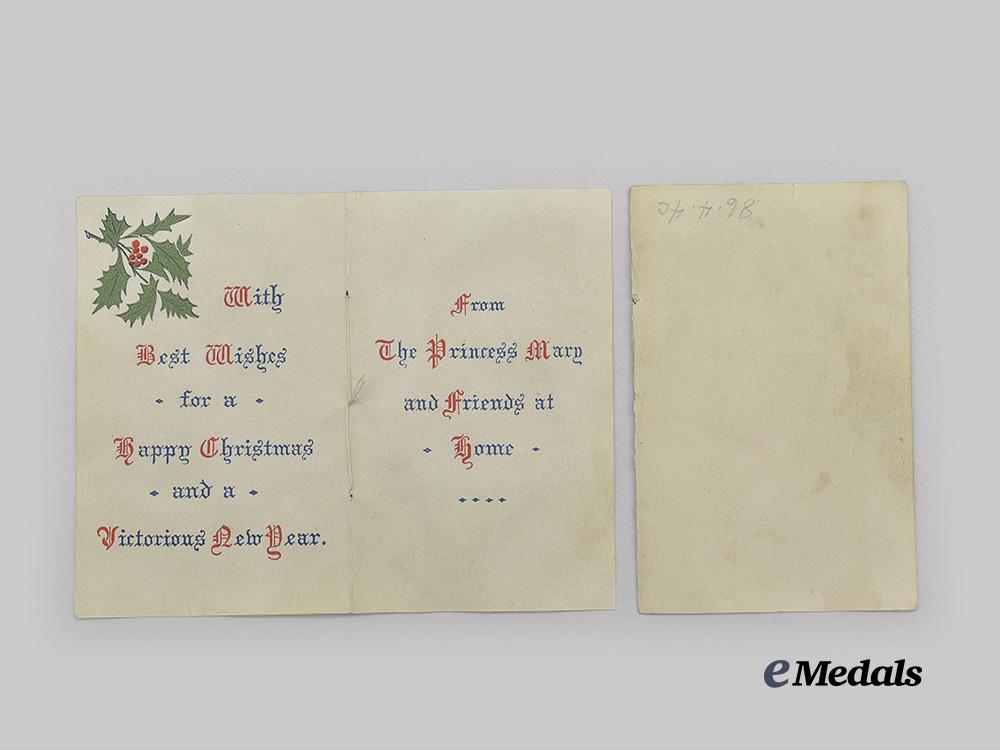 With
Best Wishes
for a
Happy Christmas
and a
Victorious New Year.
From
The Princess Mary
and Friends at
Home
eMedals